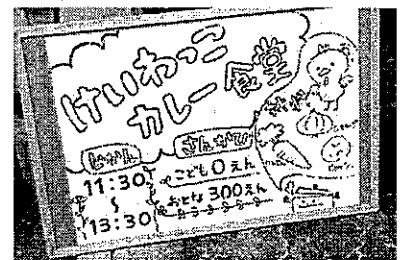 けいわっこ
カレー食堂
じかん
11:30
〜
13:30
さんかひ
こども0えん
おとな300えん